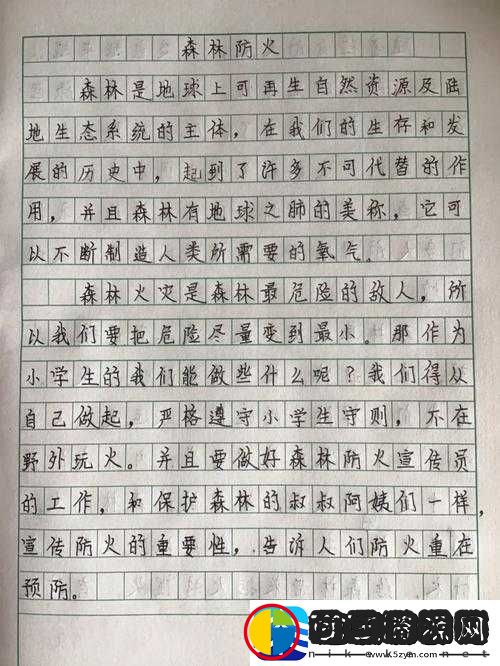 森林防火
森林是地球上可再生自然资源及陆
地生态系统的主体，在我们的生存和发
展的历史中，起到了许多不可代替的作
用，并且森林有地球之肺的美称，它可
以不断制造人类所需要的氧气。
森林火灾是森林最危险的敌人，所
以我们要把危险尽量变到最小。那作为
小学生的我们能做些什么呢？我们得从
自己做起，严格遵守小学生守则，不在
野外玩火。并且要做好森林防火宣传员
的工作，和保护森林的叔叔阿姨们一样，
宣传防火的重要性，告诉人们防火重在
预防。
www.k5zym.com